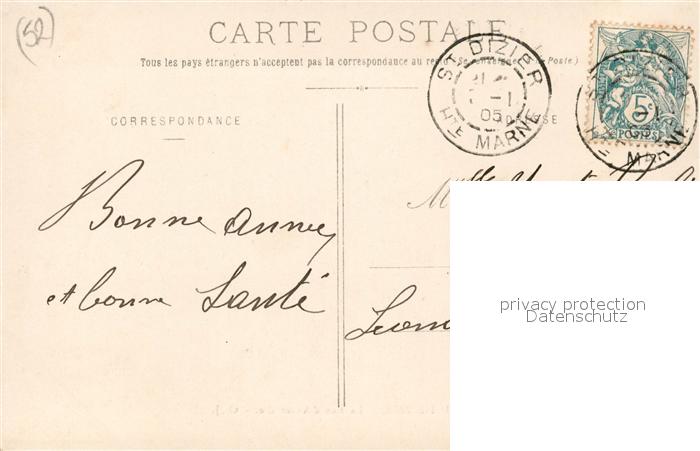 (52)
CARTE POSTALE
Tous les pays étrangers n'acceptent pas la correspondance au recto (Se renseigner à la Poste)
ST DIZIER
1
05
HTE MARNE
5c
POSTES
MARNE
CORRESPONDANCE
ADRESSE
Bonne année
et bonne Santé
privacy protection
Datenschutz